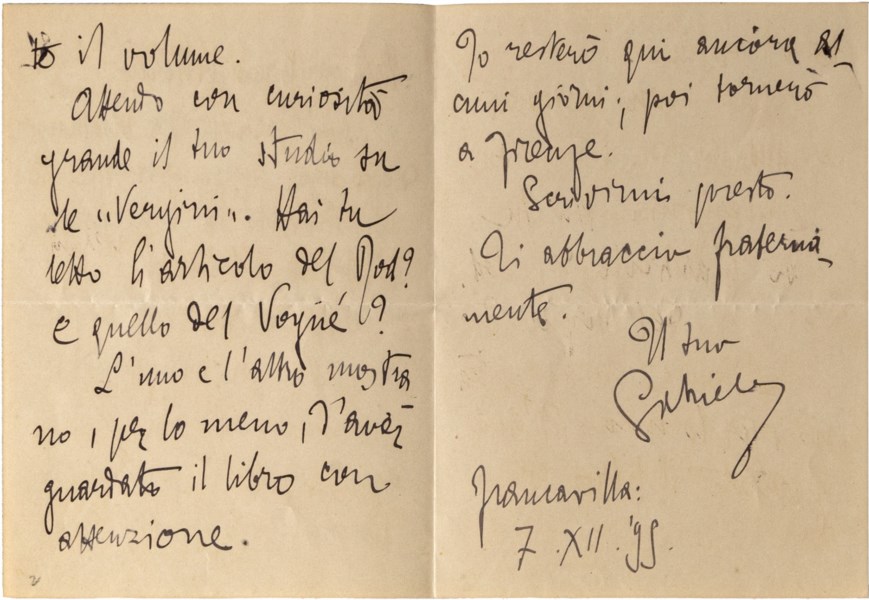 to il volume.
Attendo con curiosità
grande il tuo studio su
le "Vergini". Hai tu
letto l'articolo del Rod?
e quello del Vogüé?
L'uno e l'altro mostra
no, per lo meno, d'aver
guardato il libro con
attenzione.
2
Io resterò qui ancora al-
cuni giorni; poi tornerò
a Firenze.
Scrivimi presto.
Ti abbraccio fraterna-
mente.
Il tuo
Gabriele
Francavilla:
7.XII.'95.